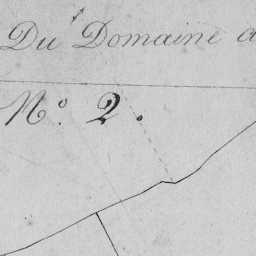 Du Domaine d
N.º 2.